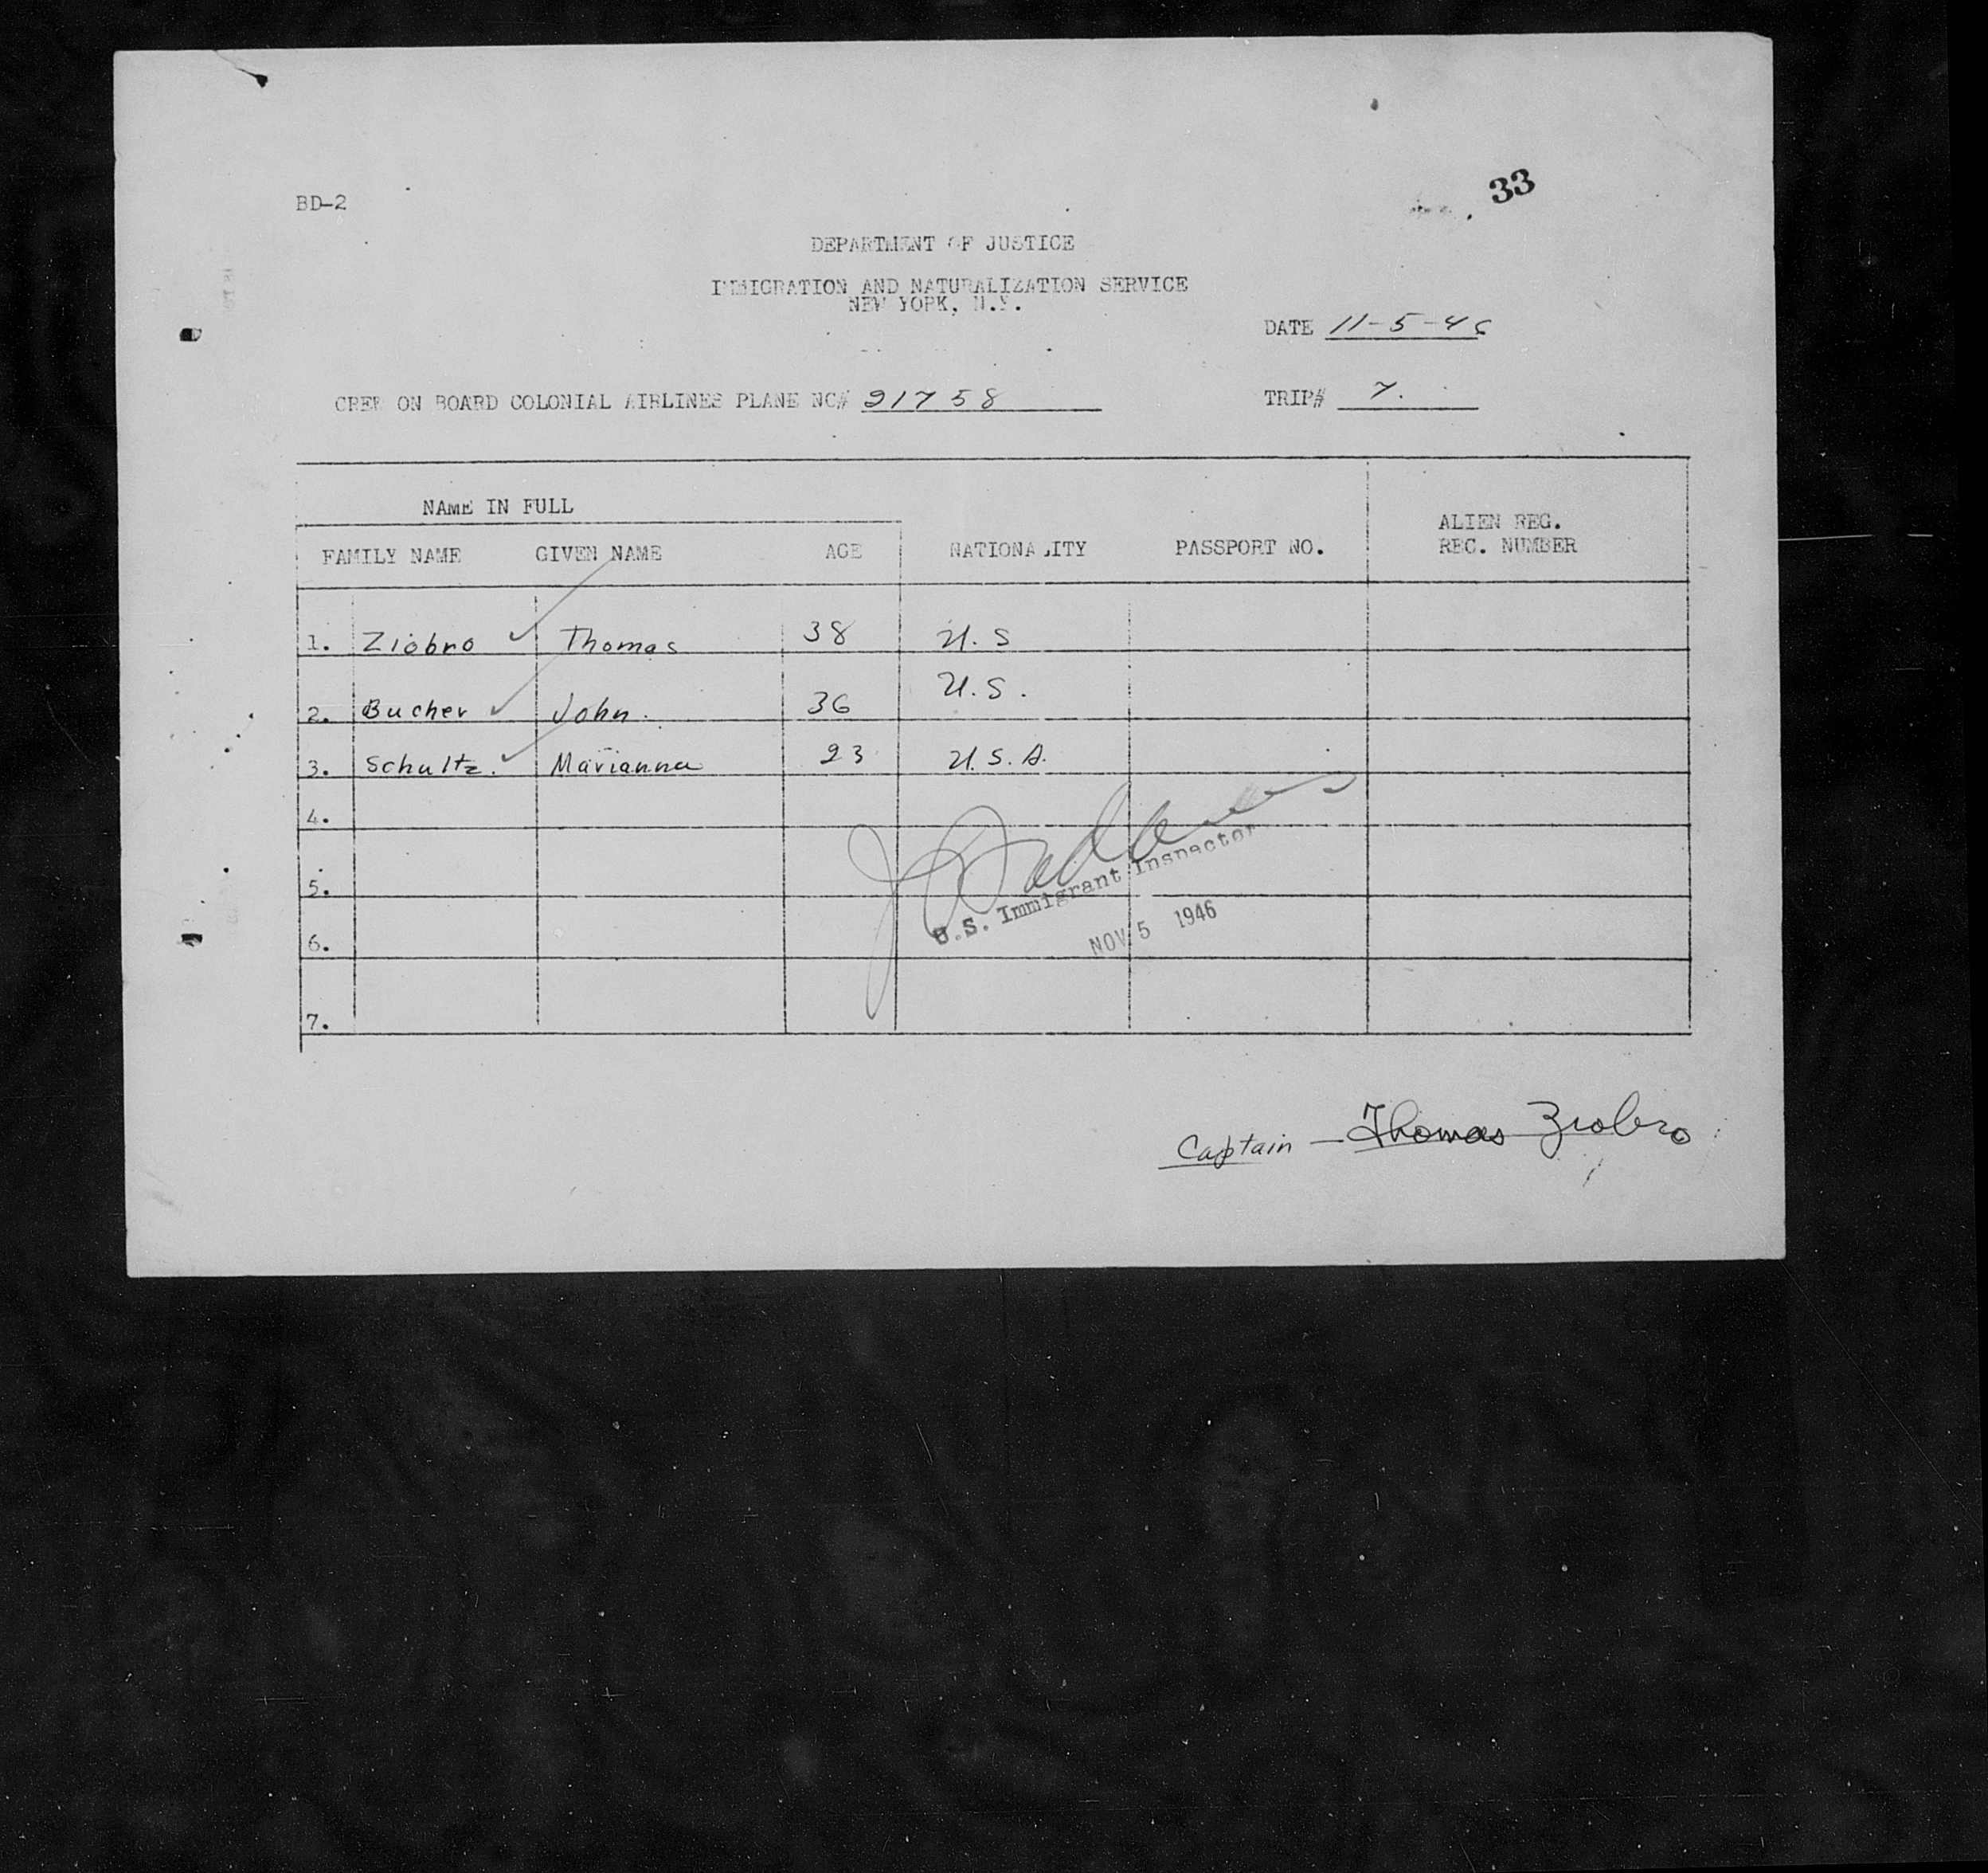 33
BD-2
DEPARTMENT OF JUSTICE
IMMIGRATION AND NATURALIZATION SERVICE
NEW YORK, N.Y.
DATE 11-5-46
CREW ON BOARD COLONIAL AIRLINES PLANE NC# 21758
TRIP# 7.
NAME IN FULL
FAMILY NAME GIVEN NAME AGE NATIONALITY PASSPORT NO. ALIEN REG. REC. NUMBER
1. Ziobro Thomas 38 U.S
2. Bucher John. 36 U.S.
3. Schultz. Marianna 23 U.S.A.
4.
5.
6.
7.
U.S. Immigrant Inspector
NOV 5 1946
Captain - Thomas Ziobro